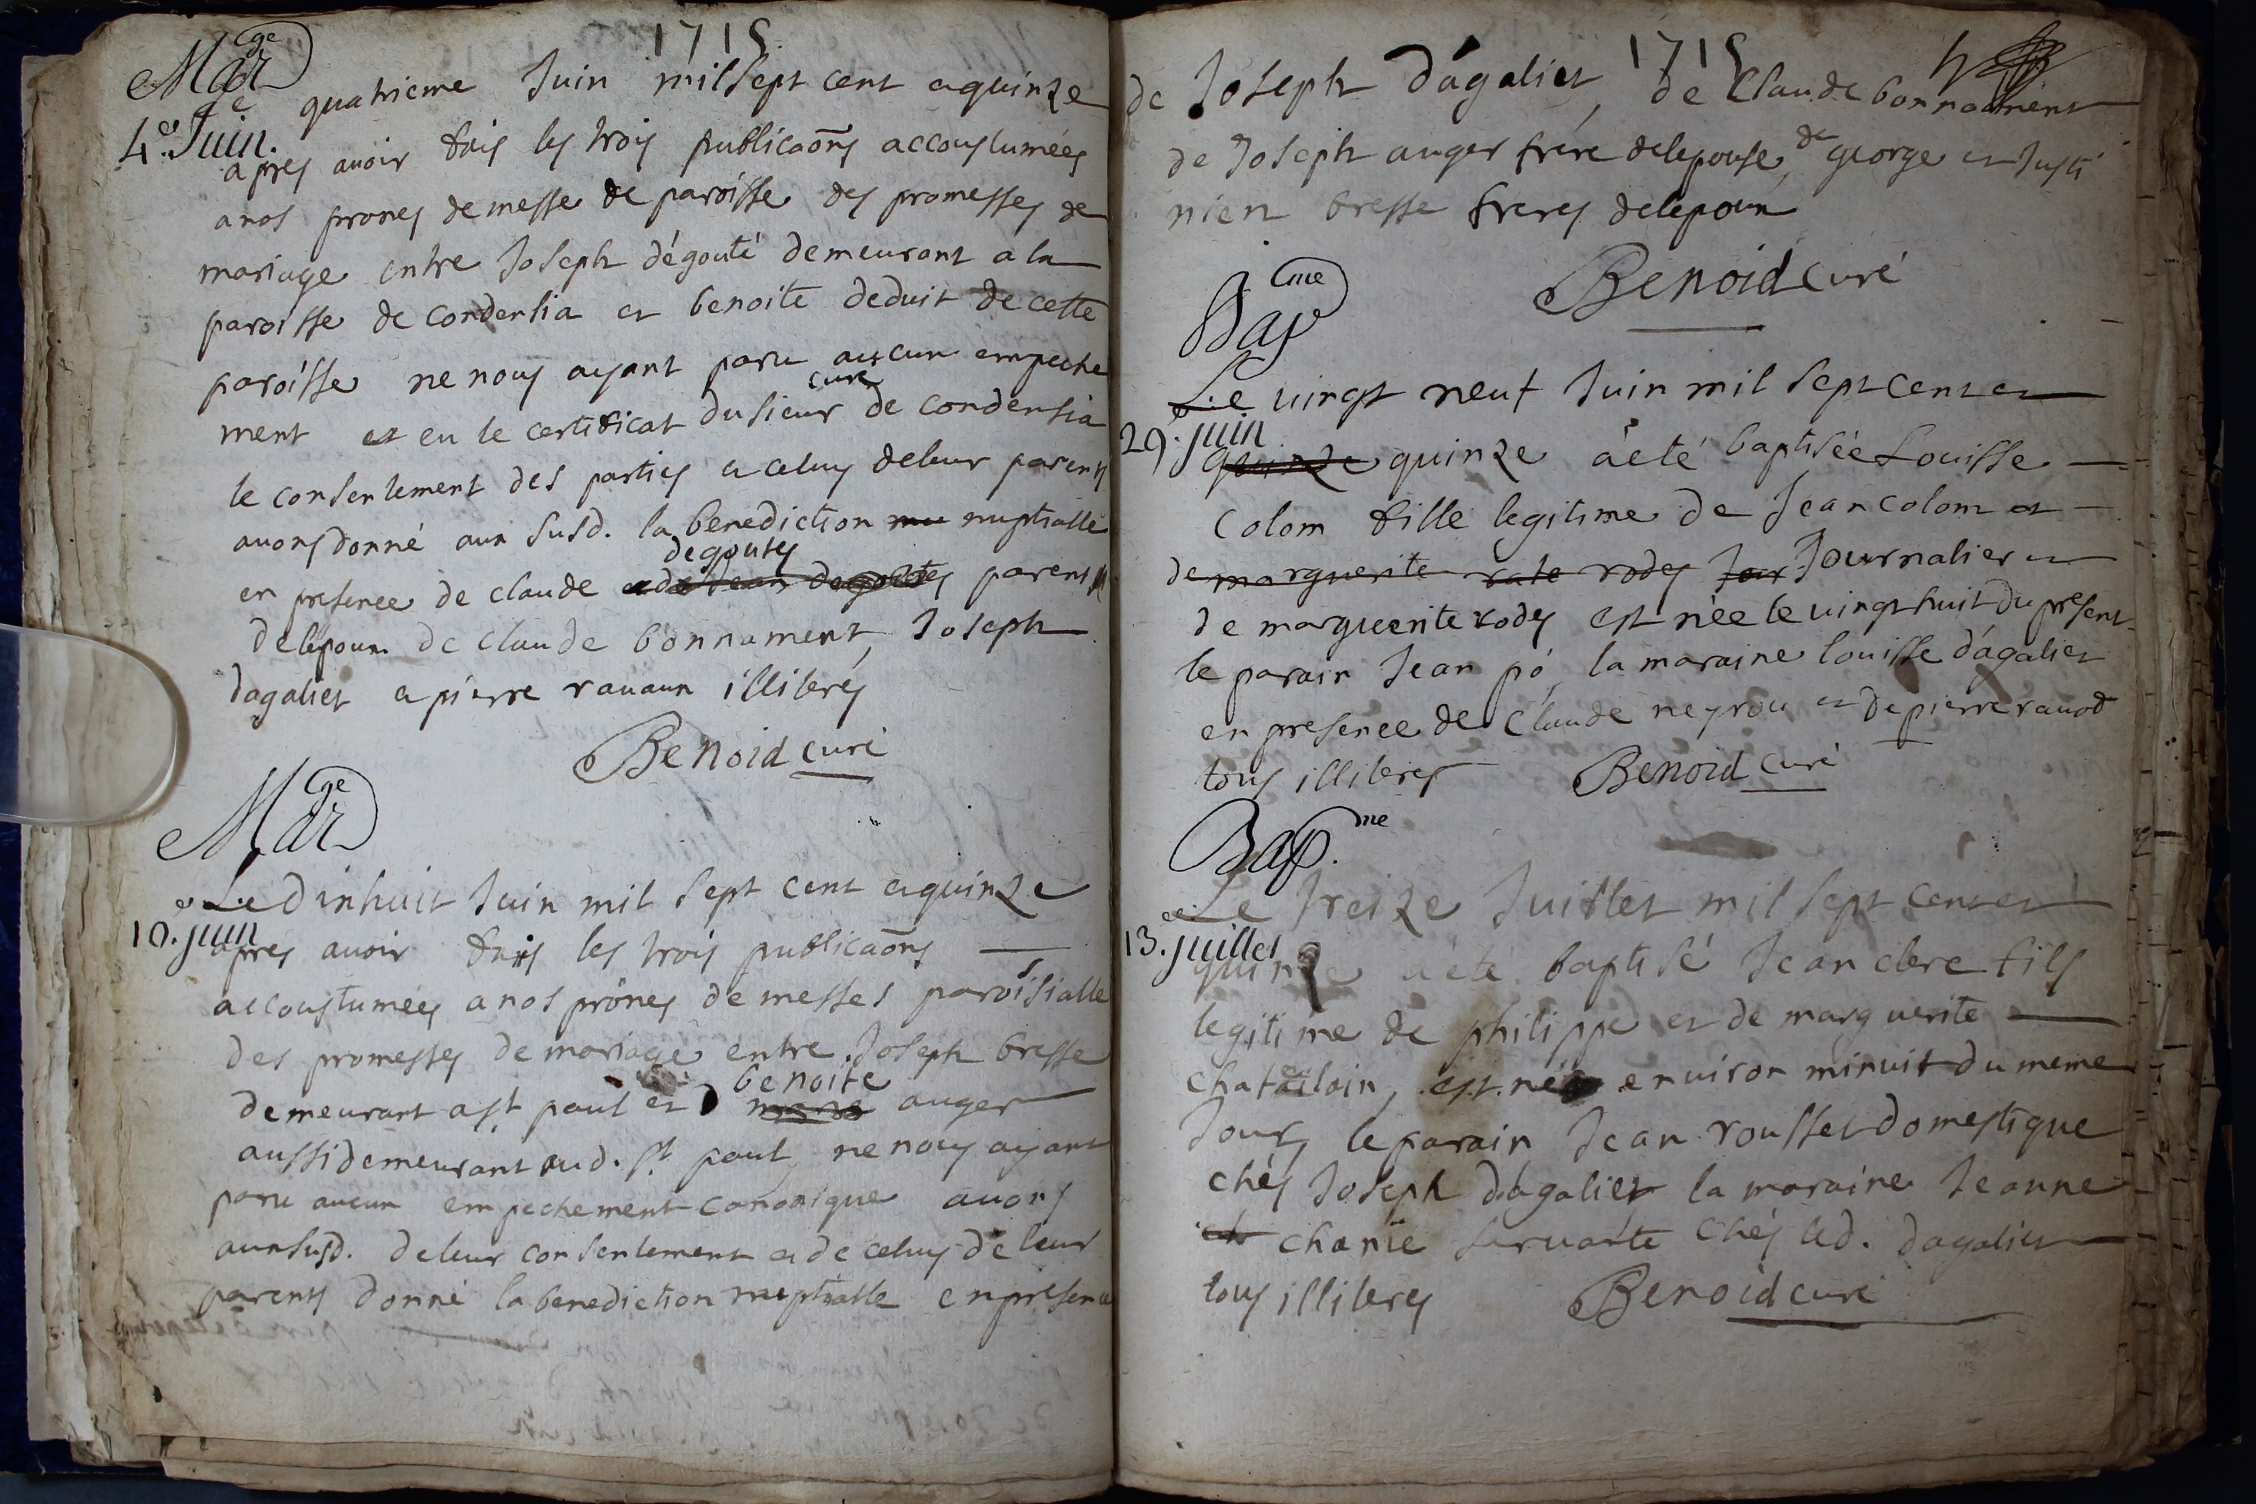 1715
Mar ge
Le quatrieme Juin mil sept cent et quinze
4e. Juin.
apres avoir fais les trois publicaons accoustumées
a nos prones de messe de paroisse des promesses de
mariage entre Joseph dégouté demeurant a la
paroisse de condensia et benoite deduit de cette
paroisse ne nous ayant paru aucun empeche
curé
ment et eu le certificat du sieur de condensia
le consentement des parties et celuy de leur parents
avons donné aux susd. la benediction nuptialle
degoutes
en presence de claude parents
de lepoux de claude bonnament, Joseph
dagalier et pierre ravaux illiterés
Benoid curé
Mar ge
Le dixhuit Juin mil sept cent et quinze
18. juin
apres avoir fais les trois publicaons
accoustumées a nos prônes de messes paroisialle
des promesses de mariage entre Joseph bresse
benoite
demeurant a st paul et auger
aussi demeurant aud. st paul, ne nous ayant
paru aucun empechement canonique avons
aux susd. de leur consentement et de celuy de leur
parents donné la benediction nuptialle en presence
1715
de Joseph dágalier, de Claude bonnament
de Joseph auger frére de lepouse, de george et Justi
nien bresse freres de lepoux
Benoid curé
Bap me
Le vingt neuf Juin mil sept cent et
29. juin
quinze quinze a eté baptisée Louisse
Colom fille legitime de Jean colom et
de marguerite rate rodes Jour Journalier et
de marguerite rodes est née le vingt huit du present
le parain Jean pó, la maraine louisse dágalier
en presence de Claude neyrou et de pierre ravod
tous illiteres Benoid curé
Bap. me
Le treize Juillet mil sept cent et
13. juillet
quinze a eté baptisé Jean clerc fils
legitime de philippe et de marguerite
est né environ minuit du meme
Jour, le parain Jean rousset domestique
chés Joseph dágalier la maraine Jeanne
charïe servante chés led. dagalier
tous illiteres Benoid curé